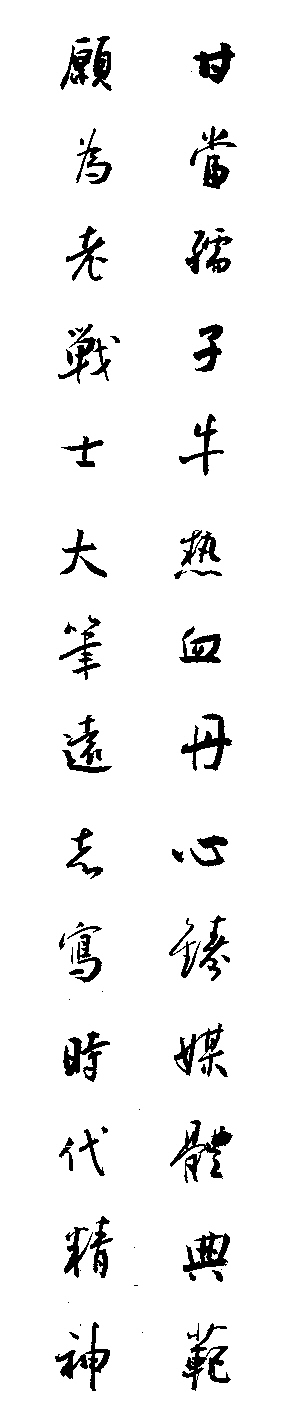 甘當孺子牛热血丹心鑄媒體典範
願為老戰士大筆遠志寫時代精神